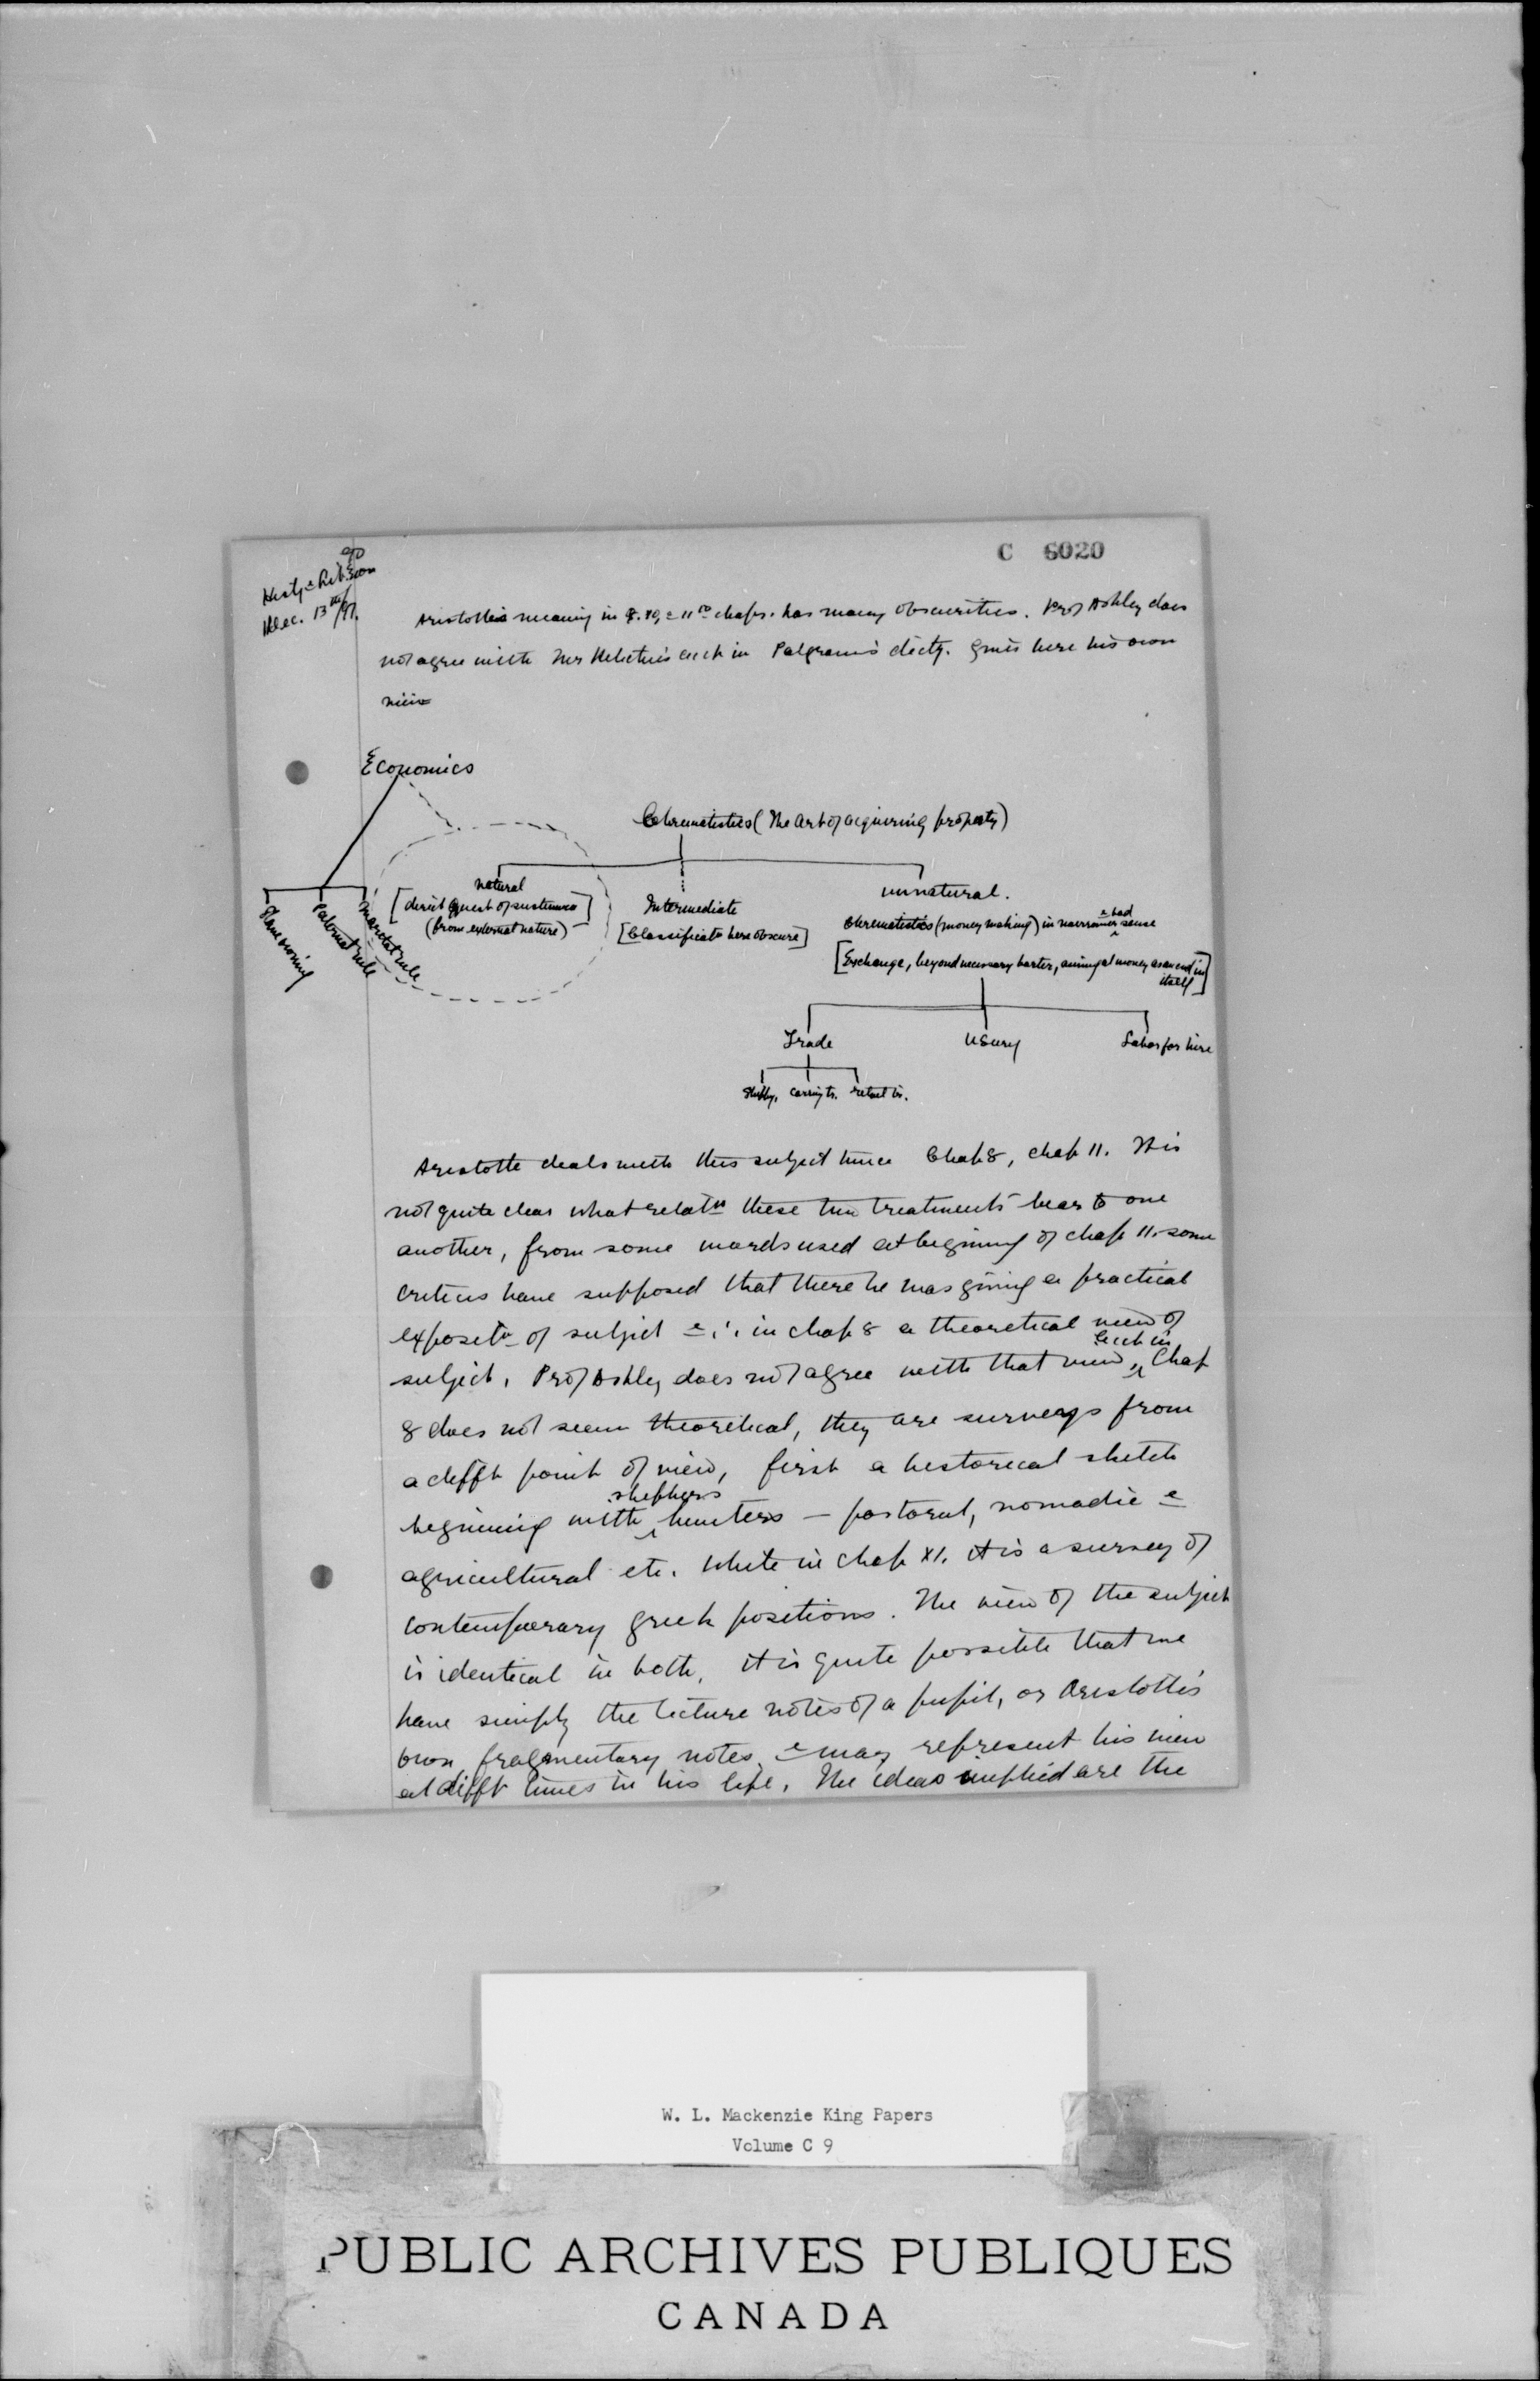 C 6020
Dec. 13th/97.
Aristotle's meaning in 8. 10, & 11th chaps. has many obscurities. Prof Ashley does
not agree with in Palgrave's dicty. gives here his own
view
Economics
Chrematistics (The art of acquiring property)
natural
[direct quest of sustenance]
(from external nature)
Intermediate
[Classificatn here obscure]
unnatural.
& bad
Chrematistics (money making) in narrower sense
[Exchange, beyond necessary barter, aiming at money as an end in
itself]
Slave owning
Paternal rule
Marital rule
Trade
Usury
Labor for hire
carrying tr. retail tr.
Aristotle deals with this subject twice Chap 8, chap 11. It is
not quite clear what relatn these two treatments bear to one
another, from some words used at beginning of chap 11. some
critics have supposed that there he was giving a practical
expositn of subject & ∴ in chap 8 a theoretical view of
subject. Prof Ashley does not agree with that view, Chap
8 does not seem theoretical, they are surveys from
a difft point of view, first a historical sketch
shephers
beginning with hunters — pastoral, nomadic &
agricultural etc. While in chap XI. it is a survey of
contemporary greek positions. The view of the subject
is identical in both. it is quite possible that we
have simply the lecture notes of a pupil, or Aristotle's
own fragmentary notes. & may represent his view
at difft times in his life. The ideas implied are the
W. L. Mackenzie King Papers
Volume C 9
PUBLIC ARCHIVES PUBLIQUES
CANADA